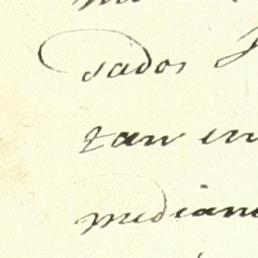 sados
tan en
median